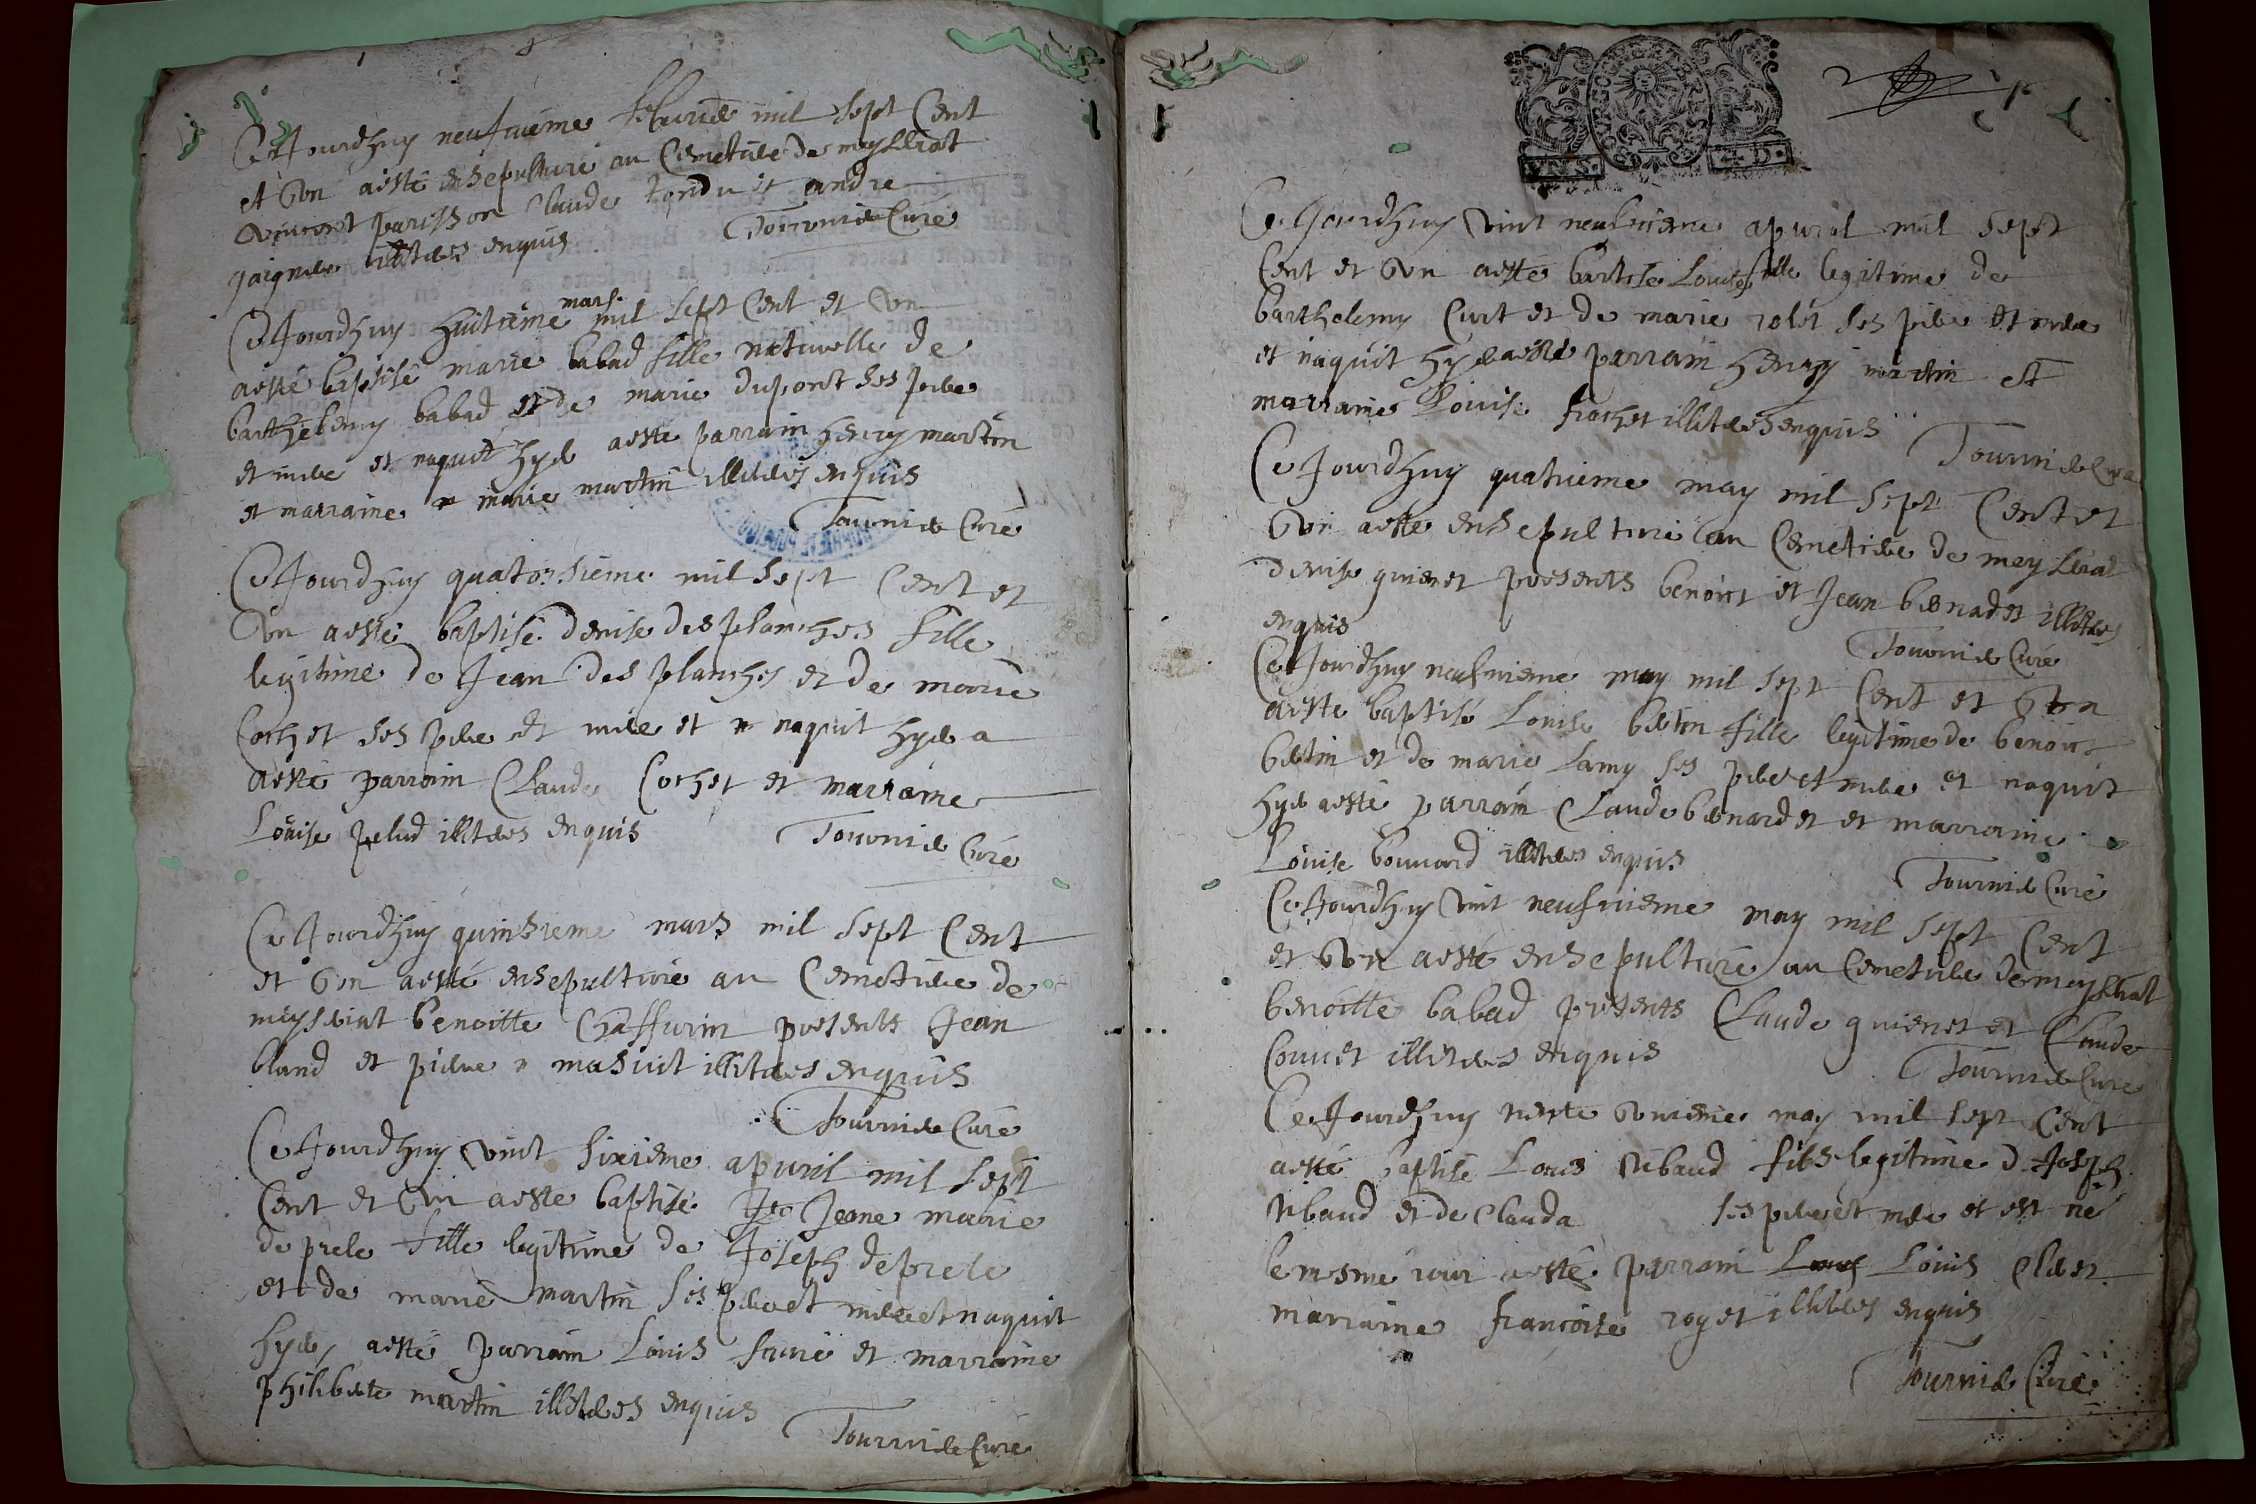 Ce Jourdhuy neufvieme febvrie mil sept Cent
et Vn aesté ensepulturé au Cemetiere de meysseriat
vincent parisson Claude tondu et andre
illiteres enquis Tournier Curé
Ce Jourdhuy huitieme mars mil sept Cent et Vn
aesté baptisé marie babad fille naturelle de
barthelemy babad et de marie dupont ses pere
et mere et naquit hyer aesté parrain henry martin
et marraine marie martin illiteres enquis
Tournier Curé
Ce Jourdhuy quatorsieme mil sept Cent et
Vn aesté baptisé denise desplanches fille
legitime de Jean Desplanches et de marie
Cochet ses pere et mere et naquit hyer a
aesté parrain Claude Cochet et marraine
Louise pelud illiteres enquis Tournier Curé
Ce Jourdhuy quinsieme mars mil sept Cent
et Vn aesté ensepulturé au Cemetiere de
meyseriat benoitte Chaffurin presents Jean
bland et pierre masuit illiteres enquis
Tournier Curé
Ce Jourdhuy vint sixieme apuril mil sept
Cent et Vn aesté baptisé Jeane marie
deprele fille legitime de Joseph deprele
et de marie martin ses pere et mere et naquit
hyer, aesté parrain Louis et marraine
philiberte martin illiteres enquis
Tournier Curé
Ce Jourdhuy vint neufvieme apuril mil sept
Cent et Vn aesté baptisé Louise fille legitime de
barthelemy Curt et de marie rolet ses pere et mere
et naquit hyer aesté parrain henry martin et
marraine Louise frochet illiteres enquis
Tournier Curé
Ce Jourdhuy quatrieme may mil sept Cent et
Vn aesté ensepulturé au Cemetiere de meysseriat
denise guienet presents benoict et Jean bernadet illiteres
enquis
Tournier Curé
Ce Jourdhuy neufvieme may mil sept Cent et Vn
aesté baptisé Louise bertin fille legitime de benoict
bertin et de marie Lamy ses pere et mere et naquit
hyer aesté parrain Claude bernardet et marraine
Louise bouvard illiteres enquis
Tournier Curé
Ce Jourdhuy vint neufvieme may mil sept Cent
et Vn aesté ensepulturé au Cemetiere de meysseriat
benoitte babad presents Claude guienet et Claude
Couvet illiteres enquis
Tournier Curé
Ce Jourdhuy trente Vnieme may mil sept Cent
aesté baptisé Louis tibaud fils legitime de Joseph
tibaud et de Clauda ses pere et mere et est né
le mesme jour aesté parrain Louis Clert
marraine francoise royet illiteres enquis
Tournier Curé